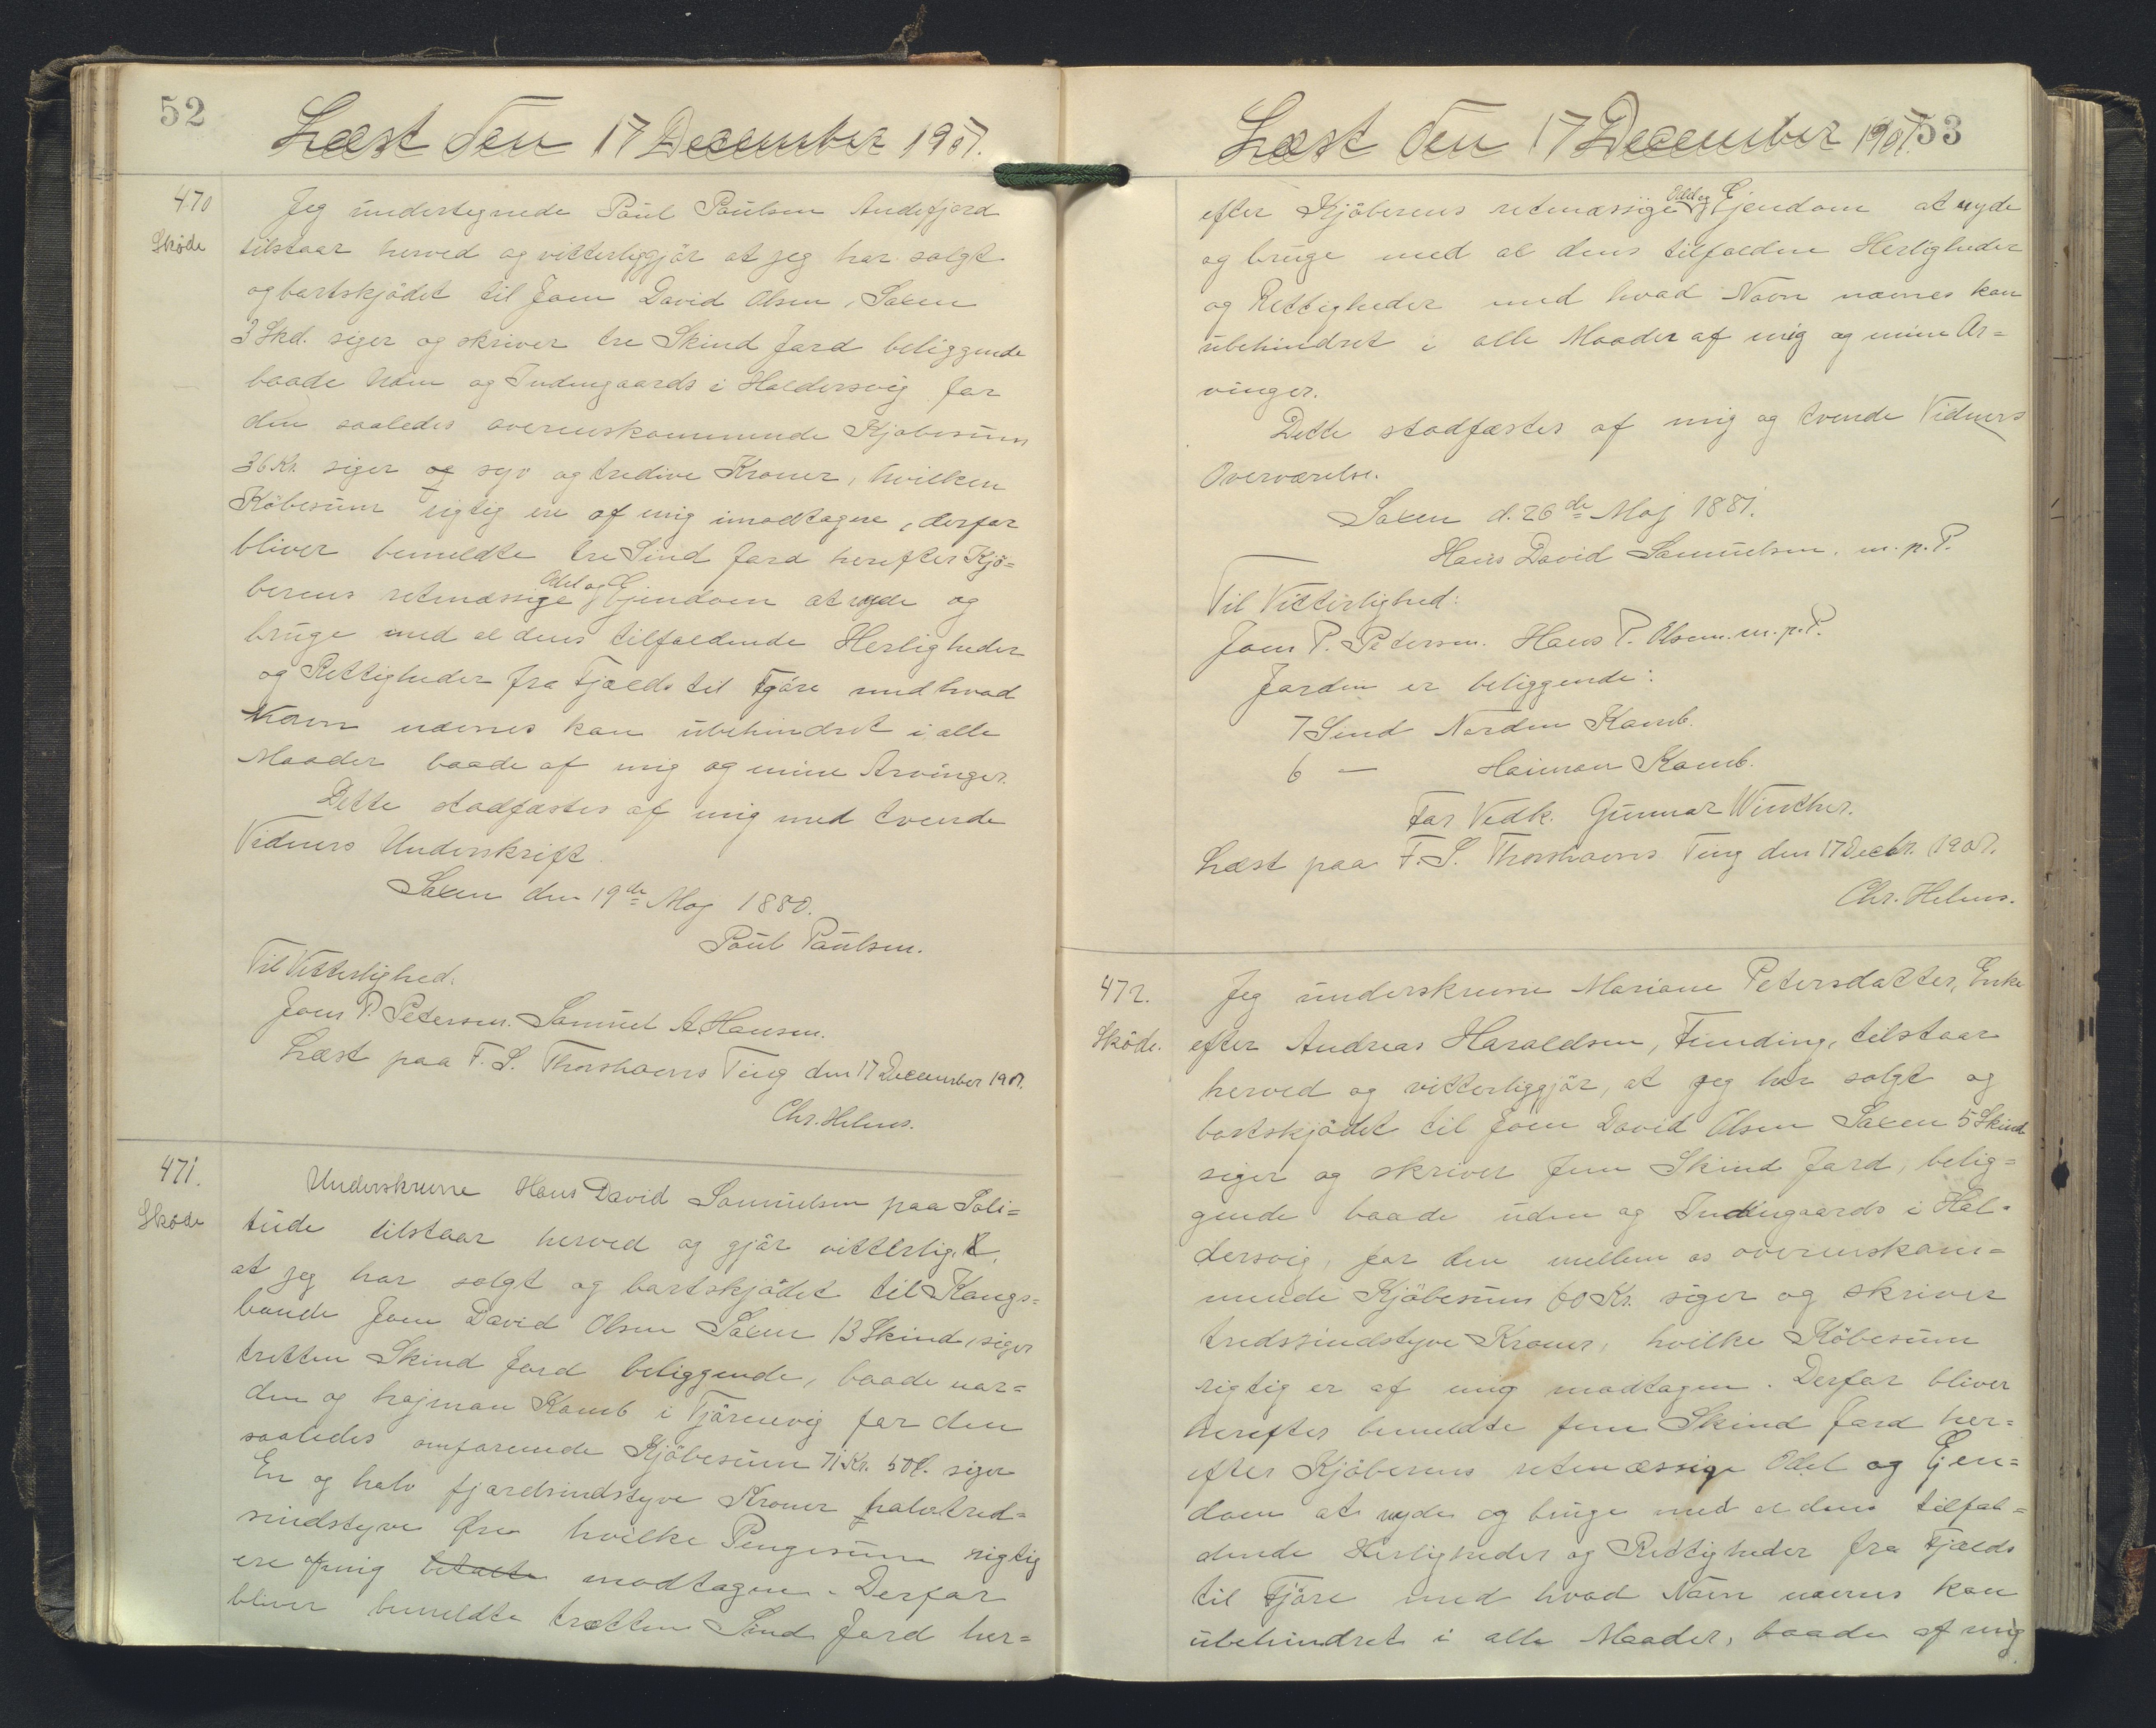 52
Læst den 17 December 1907.
470
Skøde
Jeg undertegnede Poul Poulsen Andefjord
tilstaar herved og vitterliggjör at jeg har solgt
og bortskjödet til Joen David Olsen, Saxen
3 Skd. siger og skriver tre Skind Jord beliggende
baade Uden og Indengaards i Haldersvig for
den saaledes overenskommende Kjøbesum
36 Kr. siger og syv og tredive Kroner, hvilken
Köbesum rigtig ere af mig imodtagne, derfor
bliver bemeldte tre Sind Jord herefter Kjö=
berens retmæssige Odel og Ejendom at nyde og
bruge med al dens tilfaldende Herligheder
og Rettigheder fra Fjælds til Fjöre med hvad
Navn nævnes kan übehindret i alle
Maader baade af mig og mine Arvinger.
Dette stadfæstes af mig med tvende
Vidners Underskrift.
Saxen den 19de Maj 1880.
Poul Poulsen.
Til Vitterlighed.
Joen P. Petersen. Samuel A. Hansen.
Læst paa F. S. Thorshavns Ting den 17 December 1907.
Chr. Helms.
471.
Skøde
Underskrevne Hans David Samuelsen paa Soli=
tude tilstaar herved og gjör vitterligt,
at jeg har solgt og bortskjödet til Kongs=
bonde Joen David Olsen Saxen 13 Skind, siger
tretten Skind Jord beliggende, baade nor=
den og hajman Kamb i Tjörnevig for den
saaledes omforenede Kjöbesum 71 Kr. 50 Ø. siger
En og halv fjerdsindstyve Kroner halvtred=
sindstyve Øre hvilke Pengesum rigtig
ere af mig betalte modtagen. Derfor
bliver bemeldte tretten Sind Jord her=
Læst den 17 December 1907. 53
efter Kjöberens retmæssige Odel og Ejendom at nyde
og bruge med al dens tilfaldne Herligheder
og Rettigheder med hvad Navn nævnes kan
übehindret i alle Maader af mig og mine Ar=
vinger.
Dette stadfæstes af mig og tvende Vidners
Overværelse.
Saxen d. 26de Maj 1881.
Hans David Samuelsen. m. p. P.
Til Vitterlighed:
Joen P. Petersen. Hans P. Olsen. m. p. P.
Jorden er beliggende:
7 Sind Norden Kamb.
6 — Haiman Kamb.
For Vedk. Gunnar Winther.
Læst paa F. S. Thorshavns Ting den 17 Decbr. 1907.
Chr. Helms.
472.
Sköde.
Jeg underskrevne Mariane Petersdatter, Enke
efter Andreas Haraldsen, Funding, tilstaar
herved og vitterliggjör, at jeg har solgt og
bortskjödet til Joen David Olsen Saxen 5 Skind
siger og skriver fem Skind Jord, belig=
gende baade uden og Indengaards i Hal=
dersvig, for den mellem os overenskom=
mende Kjöbesum 60 Kr. siger og skriver
tredssindstyve Kroner, hvilke Köbesum
rigtig er af mig modtagen. Derfor bliver
herefter bemeldte fem Skind Jord her=
efter Kjöberens retmæssige Odel og Ejen=
dom at nyde og bruge med al dens tilfal=
dende Herligheder og Rettigheder fra Fjælds
til Fjöre med hvad Navn nævnes kan
übehindret i alle Maader, baade af mig